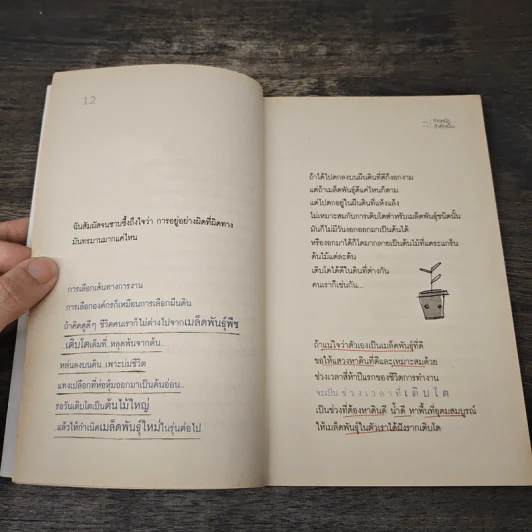 12
ฉันสัมผัสจนซาบซึ้งถึงใจว่า การอยู่อย่างผิดที่ผิดทาง
มันทรมานมากแค่ไหน
การเลือกเส้นทางการงาน
การเลือกองค์กรก็เหมือนการเลือกผืนดิน
ถ้าคิดดูดีๆ ชีวิตคนเราก็ไม่ต่างไปจากเมล็ดพันธุ์พืช
..เติบโตเต็มที่..หลุดพ้นจากต้น..
หล่นลงบนดิน เพาะบ่มชีวิต
แทงเปลือกที่ห่อหุ้มออกมาเป็นต้นอ่อน..
รอวันเติบโตเป็นต้นไม้ใหญ่
..แล้วให้กำเนิดเมล็ดพันธุ์ใหม่ในรุ่นต่อไป
ถ้าได้ไปตกลงบนผืนดินที่ดีก็งอกงาม
แต่ถ้าเมล็ดพันธุ์ดีแค่ไหนก็ตาม
แต่ไปตกอยู่ในผืนดินที่แห้งแล้ง
ไม่เหมาะสมกับการเติบโตสำหรับเมล็ดพันธุ์ชนิดนั้น
มันก็ไม่มีวันงอกออกมาเป็นต้นได้
หรืองอกมาได้ก็โตมากลายเป็นต้นไม้ที่แคระแกร็น
ต้นไม้แต่ละต้น
เติบโตได้ดีในดินที่ต่างกัน
คนเราก็เช่นกัน...
ถ้าแน่ใจว่าตัวเองเป็นเมล็ดพันธุ์ที่ดี
ขอให้แสวงหาดินที่ดีและเหมาะสมด้วย
ช่วงเวลาสี่ห้าปีแรกของชีวิตการทำงาน
จะเป็น ช่วงเวลาที่ เติบโต
เป็นช่วงที่ต้องหาดินดี น้ำดี หาพื้นที่อุดมสมบูรณ์
ให้เมล็ดพันธุ์ในตัวเราได้ฝังรากเติบโต